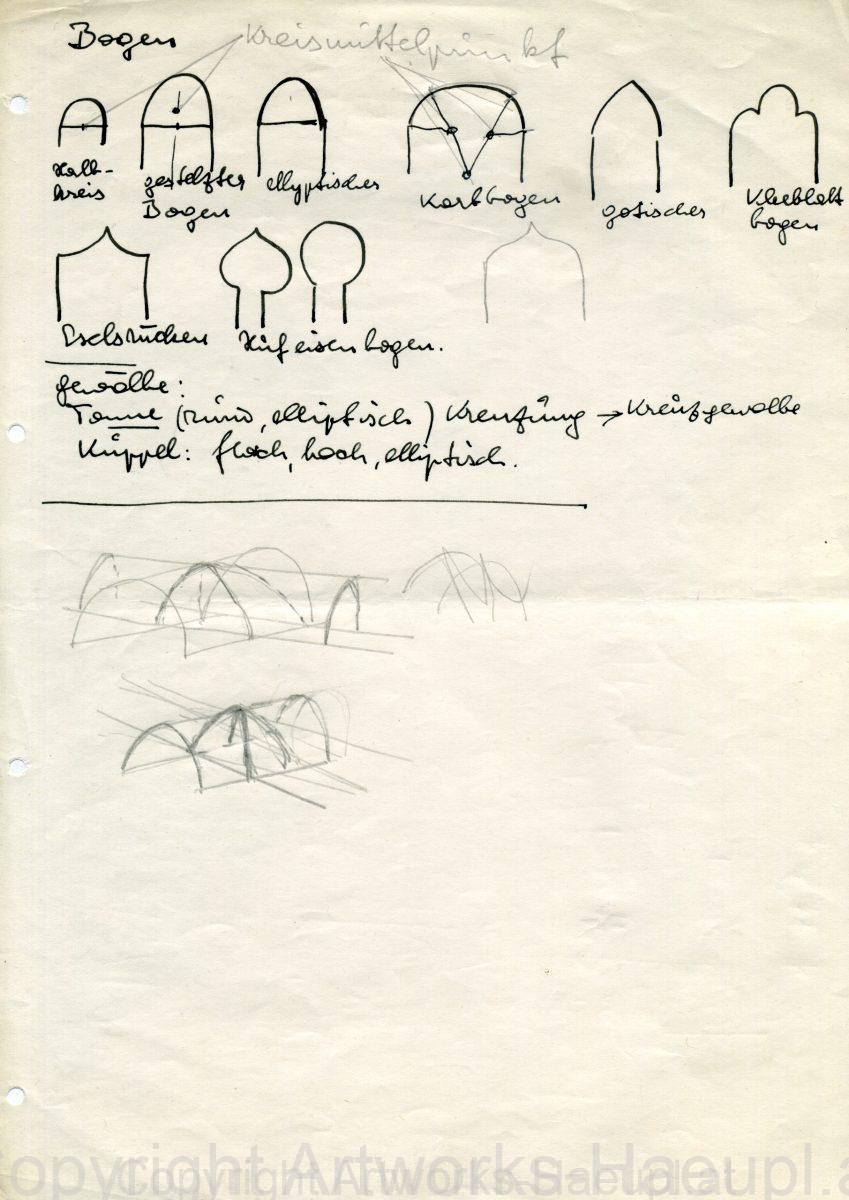 Bogen Kreismittelpunkt
Halb-
kreis
gestelzter
Bogen
ellyptischer
Korbbogen
gotischer
Kleeblatt
bogen
Eselsrücken Hufeisenbogen.
gewölbe:
Tonne (rund, elliptisch) Kreuzung → Kreuzgewölbe
Kuppel: flach, hoch, elliptisch.
Copyright Artworks-Haeupl.at
Copyright Artworks-Haeupl.at